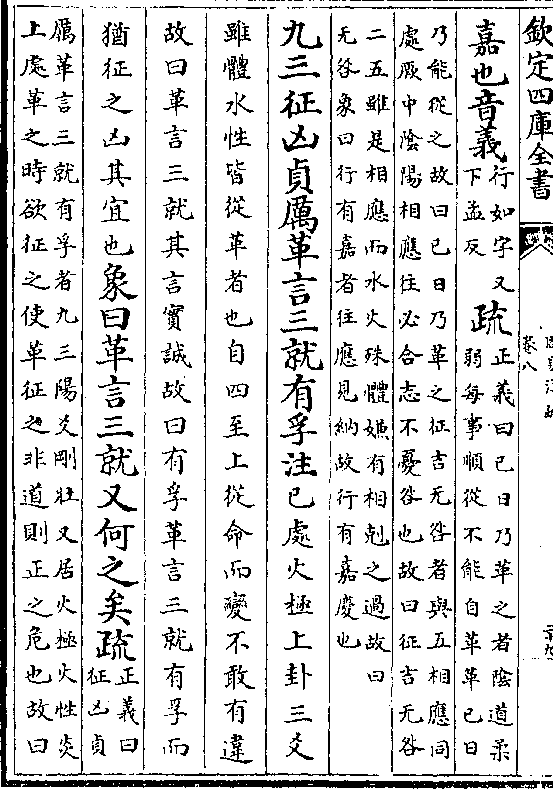 欽定四庫全書
卷八
嘉也音義
行如字又
下孟反
疏
正義曰已日乃革之者陰道柔
弱每事順從不能自革革已日
乃能從之故曰已日乃革之征吉无咎者與五相應同
處厥中陰陽相應往必合志不憂咎也故曰征吉无咎
二五雖是相應而水火殊體嫌有相剋之過故曰
无咎象曰行有嘉者往應見納故行有嘉慶也
九三征凶貞厲革言三就有孚注已處火極上卦三爻
雖體水性皆從革者也自四至上從命而變不敢有違
故曰革言三就其言實誠故曰有孚革言三就有孚而
猶征之凶其宜也象曰革言三就又何之矣疏
正義曰
征凶貞
厲革言三就有孚者九三陽爻剛壯又居火極火性炎
上處革之時欲征之使革征之非道則正之危也故曰